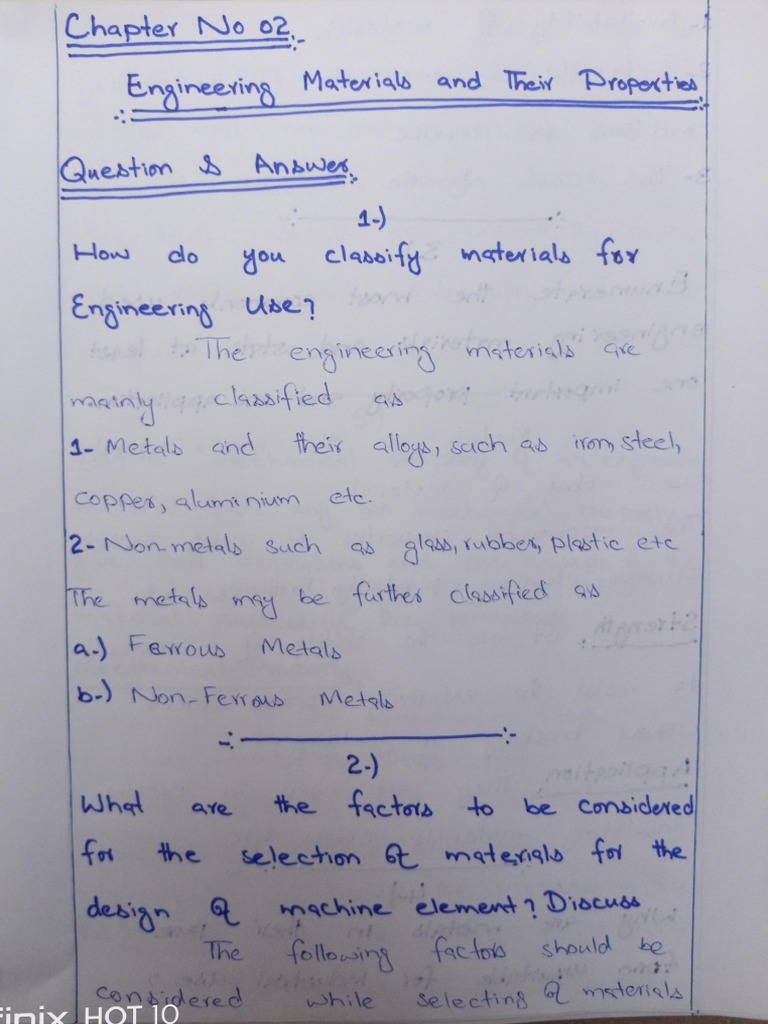 Chapter No 02
Engineering Materials and Their Properties
Question & Answer
1-)
How do you classify materials for
Engineering Use?
The engineering materials are
mainly classified as
1- Metals and their alloys, such as iron, steel,
copper, aluminium etc.
2- Non-metals such as glass, rubber, plastic etc
The metals may be further classified as
a-) Ferrous Metals
b-) Non-Ferrous Metals
2-)
What are the factors to be considered
for the selection of materials for the
design of machine element? Discuss
The following factors should be
considered while selecting of materials
Infinix HOT 10